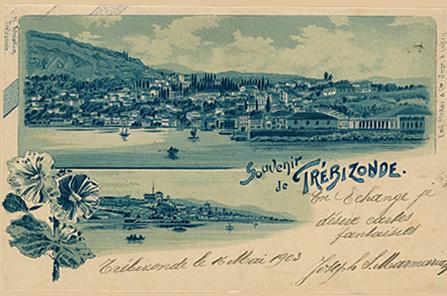 Souvenir
de TRÉBIZONDE.
En Echange je
désire cartes
fantaisies
Trébizonde le 16 Mai 1903
Joseph S. Marmarian